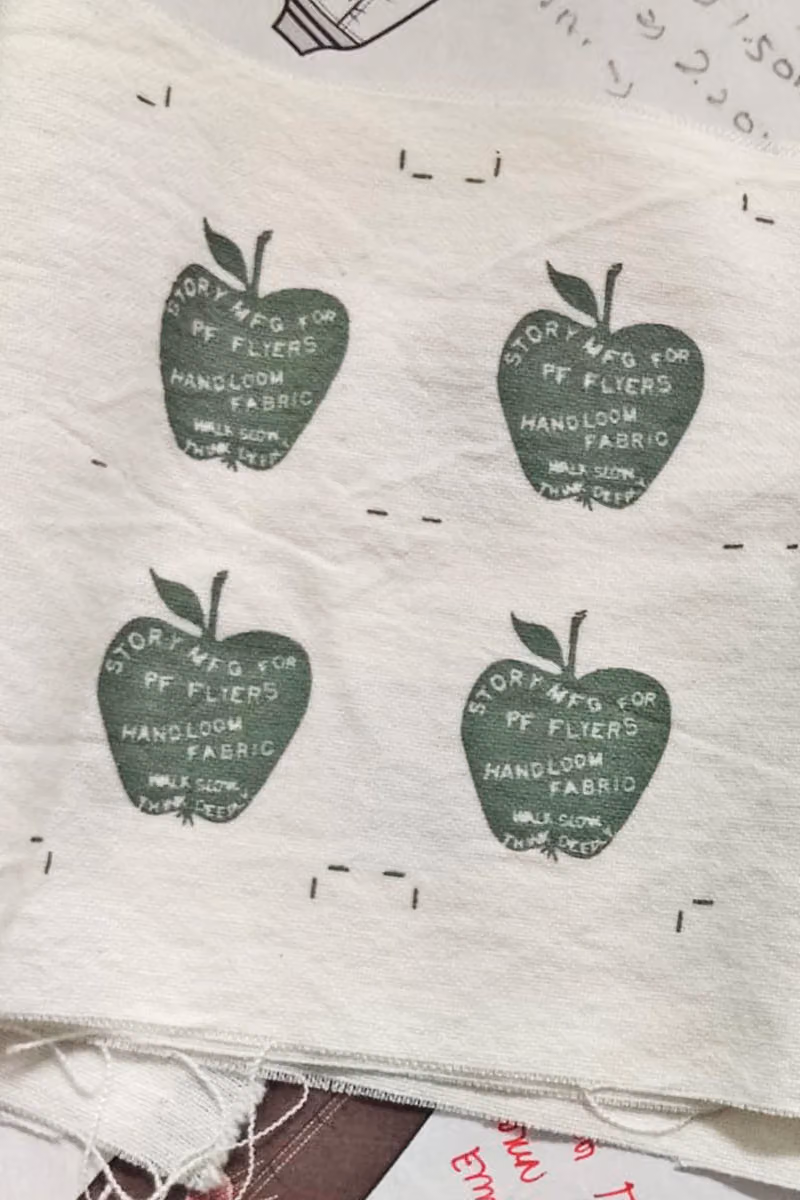 1.50
2.20.
STORY MFG FOR
PF FLYERS
HANDLOOM
FABRIC
WALK SLOW,
THINK DEEP
STORY MFG FOR
PF FLYERS
HANDLOOM
FABRIC
WALK SLOW,
THINK DEEP
STORY MFG FOR
PF FLYERS
HANDLOOM
FABRIC
WALK SLOW,
THINK DEEP
STORY MFG FOR
PF FLYERS
HANDLOOM
FABRIC
WALK SLOW,
THINK DEEP